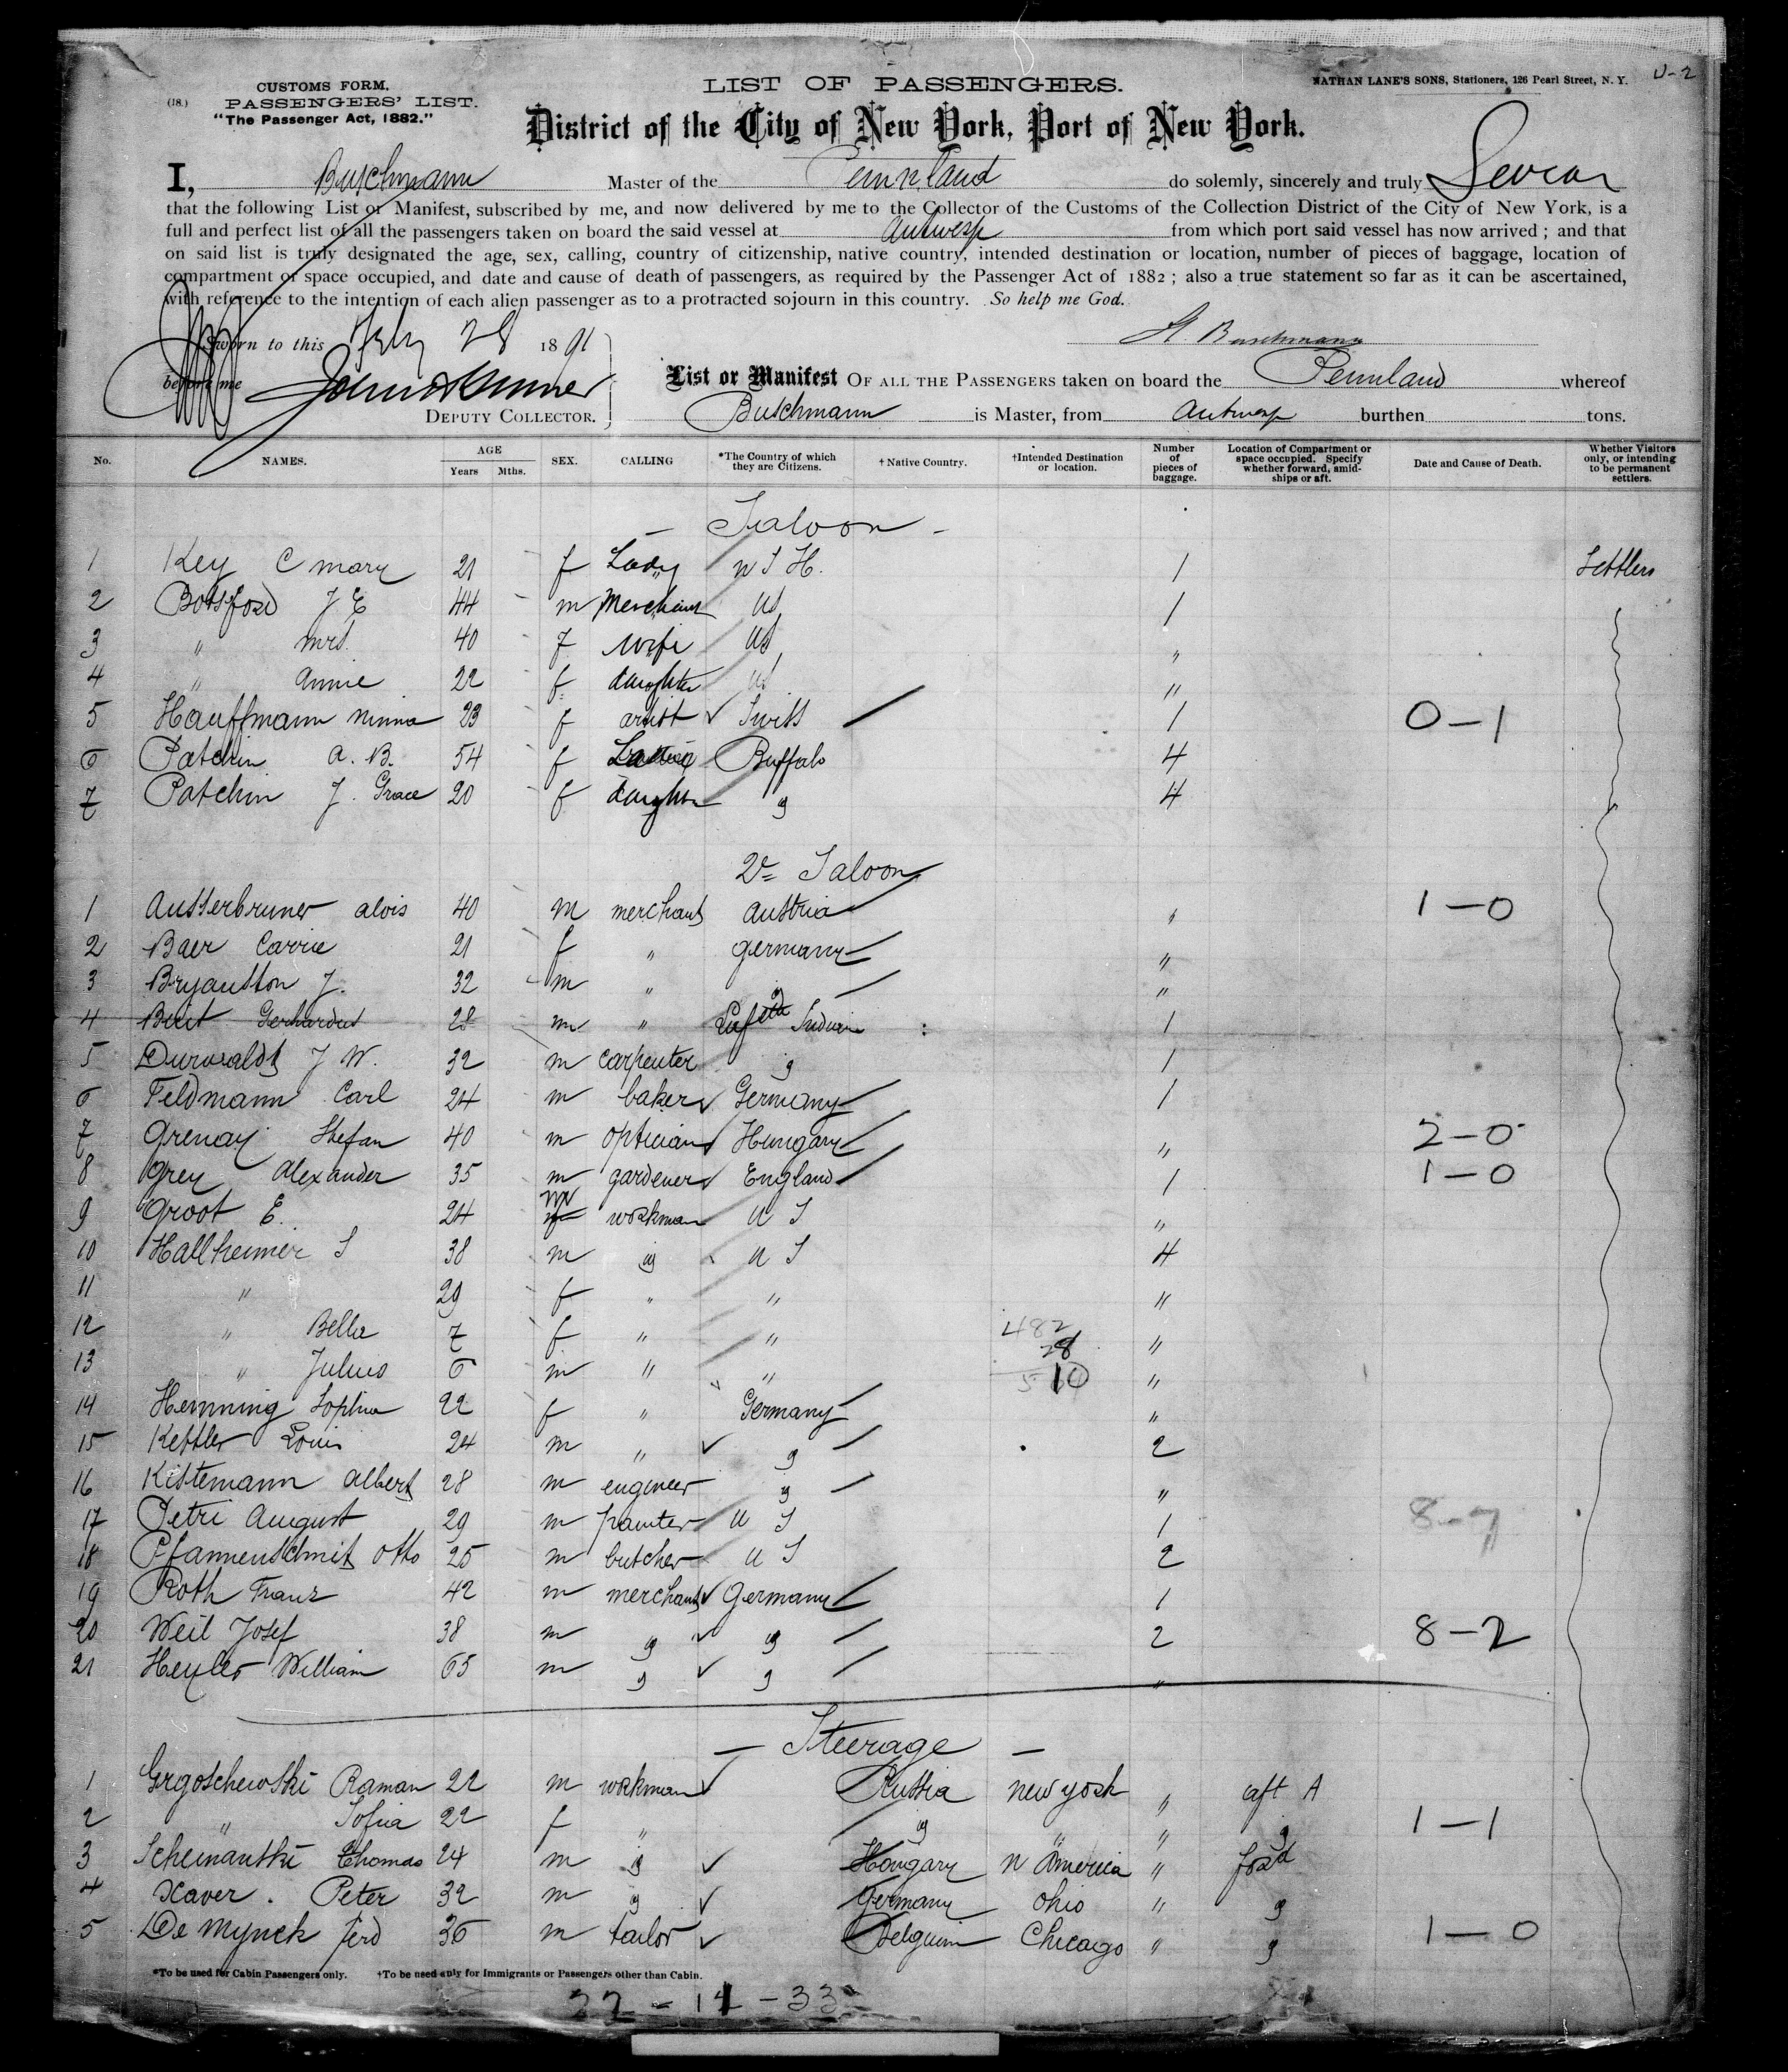 CUSTOMS FORM.
(18.) PASSENGERS' LIST.
"The Passenger Act, 1882."
LIST OF PASSENGERS.
NATHAN LANE'S SONS, Stationers, 126 Pearl Street, N. Y.
District of the City of New York, Port of New York.
I, Buschmann Master of the Pennland do solemnly, sincerely and truly Swear
that the following List or Manifest, subscribed by me, and now delivered by me to the Collector of the Customs of the Collection District of the City of New York, is a
full and perfect list of all the passengers taken on board the said vessel at Antwerp from which port said vessel has now arrived ; and that
on said list is truly designated the age, sex, calling, country of citizenship, native country, intended destination or location, number of pieces of baggage, location of
compartment or space occupied, and date and cause of death of passengers, as required by the Passenger Act of 1882 ; also a true statement so far as it can be ascertained,
with reference to the intention of each alien passenger as to a protracted sojourn in this country. So help me God.
Sworn to this 28 1891
H. Buschmann
before me
List or Manifest OF ALL THE PASSENGERS taken on board the Pennland whereof
DEPUTY COLLECTOR.
Buschmann is Master, from Antwerp burthen tons.
No. NAMES. AGE Years Mths. SEX. CALLING *The Country of which they are Citizens. †Native Country. †Intended Destination or location. Number of pieces of baggage. Location of Compartment or space occupied. Specify whether forward, amidships or aft. Date and Cause of Death. Whether Visitors only, or intending to be permanent settlers.
— Saloon —
1 Key C mary 21 f Lady 1 Settlers
2 Botsford J E 44 m Merchant US 1
3 " mrs. 40 f wife US "
4 " Annie 22 f daughter US "
5 Hauffmann minna 23 f artist Swiss 1 0-1
6 Patchin A. B. 54 f Buffalo 4
7 Patchin J. Grace 20 f daughter " 4
2d Saloon
1 Austerbruner alois 40 m merchant Austria " 1-0
2 Baer Carrie 21 f " germany "
3 Bryantson J. 32 m " " "
4 Gerhardus 28 m " 1
5 Durwaldt J W. 32 m carpenter " 1
6 Feldmann Carl 24 m baker Germany 1
7 Grenay Stefan 40 m optician Hungary " 2-0
8 Grey Alexander 35 m gardener England 1 1-0
9 Groot E. 24 m workman U S "
10 Hallheimer S 38 m " U S 4
11 " 29 f " " "
12 " Bella 7 f " " "
13 " Julius 6 m " " "
14 Hemming Sophia 22 f " Germany "
15 Kettler Louis 24 m " " 2
16 Kistemann Albert 28 m engineer " "
17 Petri August 29 m painter U S 1 8-7
18 Pfannenschmit Otto 25 m butcher U S 2
19 Roth Franz 42 m merchant Germany 1
20 Weil Josef 38 m " " 2 8-2
21 Heyler William 65 m " " "
— Steerage —
1 Grgoschewski Raman 22 m workman Russia new york " aft A
2 " Sofia 22 f " " " " " 1-1
3 Scheinautki Thomas 24 m " Hongary n America " forwd
4 Xaver. Peter 32 m " Germany Ohio " "
5 De Mynck Ferd 36 m tailor Belguim Chicago " " 1-0
*To be used for Cabin Passengers only. †To be used only for Immigrants or Passengers other than Cabin.
22-11-33